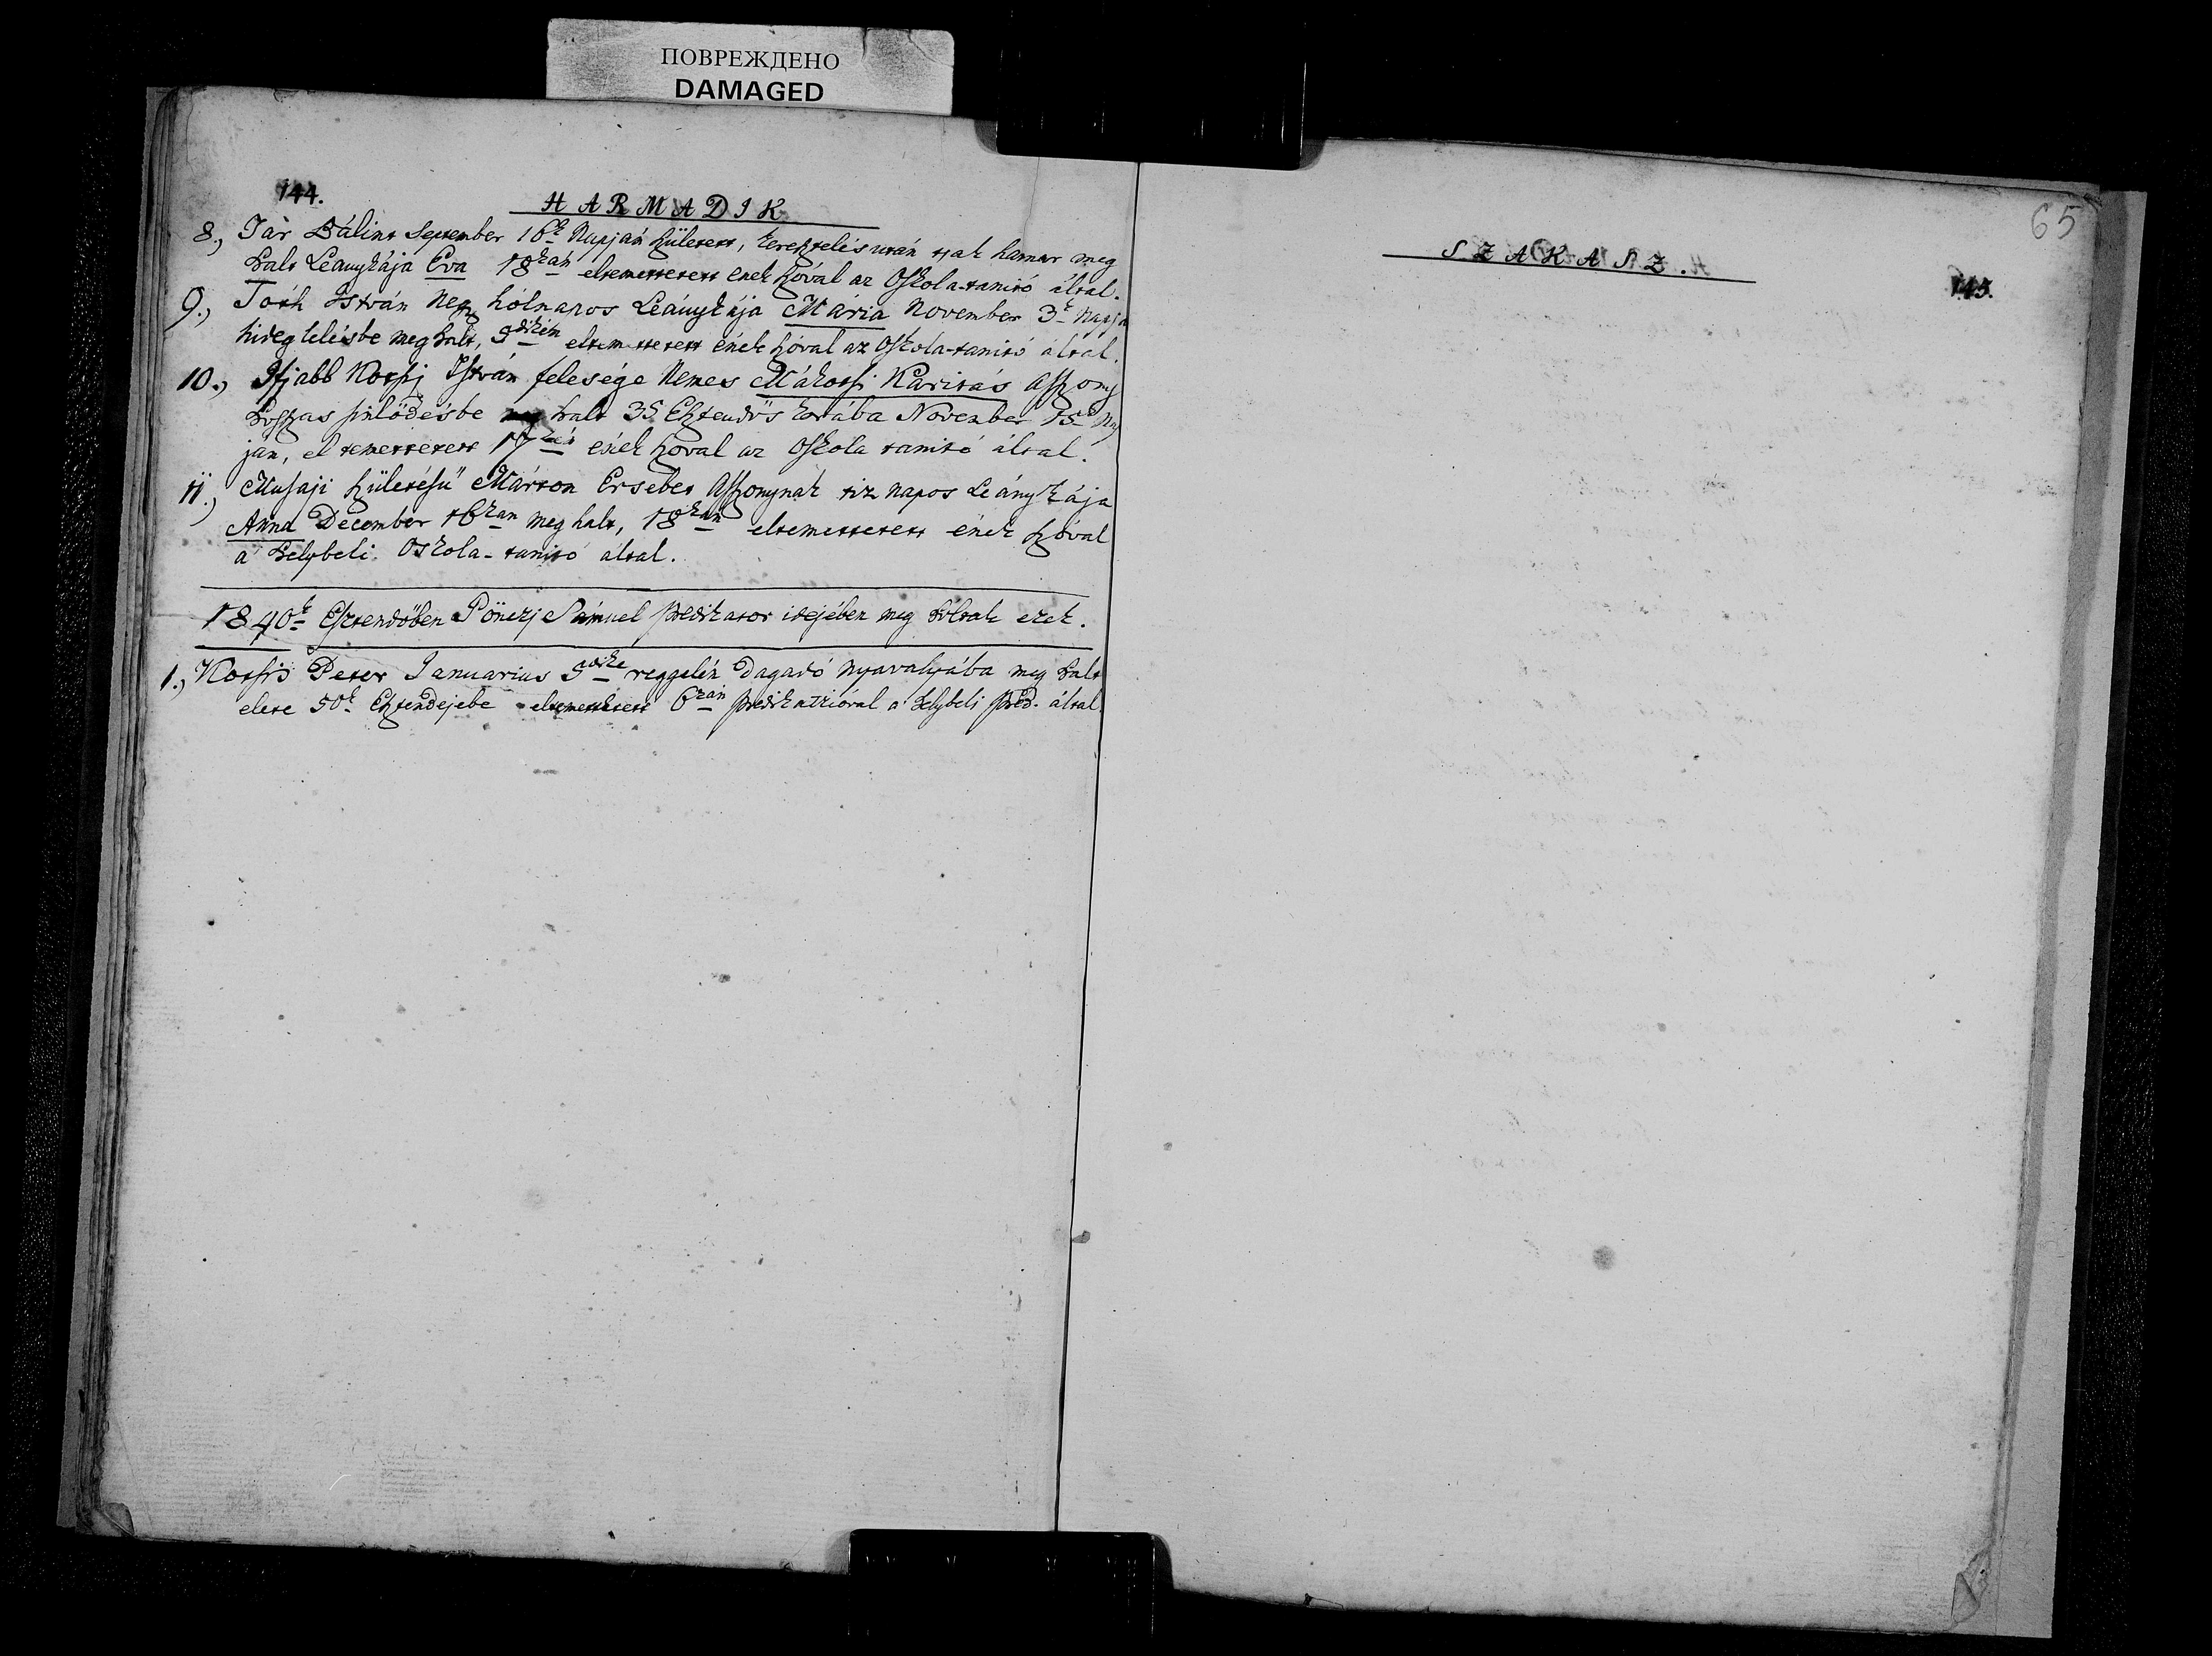 ПОВРЕЖДЕНО
DAMAGED
144.
HARMADIK
8., Tár Bálint September 16k Napján született, keresztelés után tsak hamar meg
halt Leánykája Éva 18kán eltemettetett ének szóval az Oskola-tanitó által.
9., Tóth István Négy hólnapos Leánykája Mária November 3k Napja
hideglelésbe meghalt, 5dikén eltemettetett ének szóval az Oskola-tanitó által.
10., Ifjabb István felesége Nemes Makossi Karitás Asszony
hosszas halt 35 Esztendős korába November 15k Nap
ján, el temettetett 17kén ének szoval az Oskola tanitó által.
11., Musaji születésű Márton Ersebet Asszonynak tiz napos Leánykája
Anna December 16kan meg halt, 18kán eltemettetett ének szóval
a helybeli Oskola-tanitó által.
1840k Esztendőben Pönczj Sámuel predikator idejében meg holtak ezek.
1., Peter Januarius 5dike reggelén Dagadó nyavalyába meg halt
elete 50k Esztendejebe eltemettetett 6kán predikatzióval a helybeli Préd. által.
65
SZAKASZ.
145.